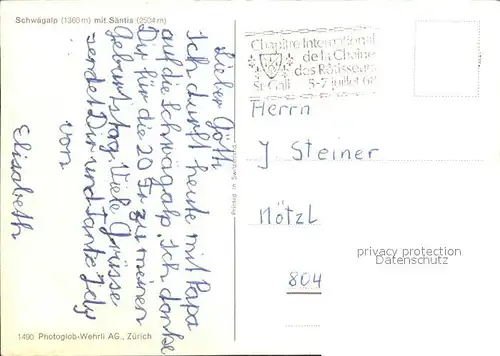 Schwägalp (1360 m) mit Säntis (2504 m)
Lieber Götti
Ich durft heute mit Papa
auf die Schwägalp. Ich danke
Dir für die 20 Fr. zu meinen
Geburtstag. Viele Grüsse
sendet Dir und Tante Idy
von
Elisabeth
1490 Photoglob-Wehrli AG., Zürich
Printed in Switzerland
Chapitre International
de la Chaîne
des Rôtisseurs
St. Gall 5-7 juillet 68
Herrn
J. Steiner
Nötzl
804
privacy protection
Datenschutz